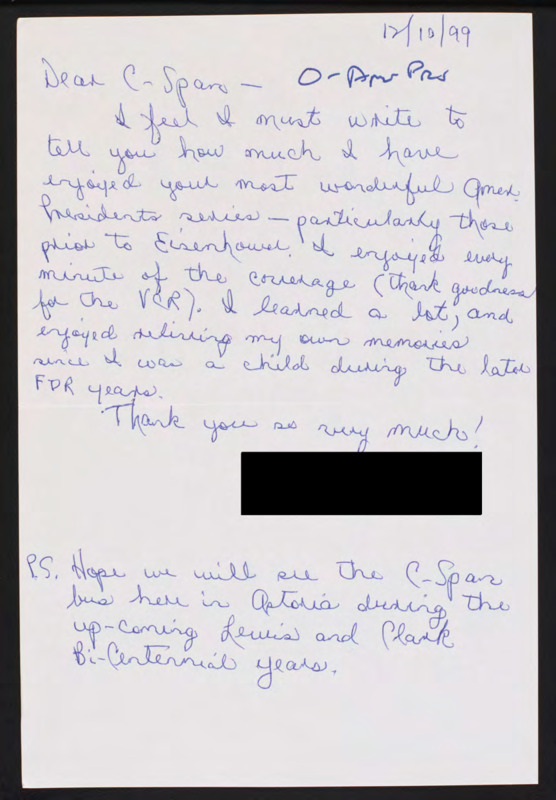 12/10/99
Dear C-Span — O-Am Prs
I feel I must write to
tell you how much I have
enjoyed your most wonderful Amer.
Presidents series — particularly those
prior to Eisenhower. I enjoyed every
minute of the coverage (thank goodness
for the VCR). I learned a lot, and
enjoyed reliving my own memories
since I was a child during the later
FDR years.
Thank you so very much!
P.S. Hope we will see the C-Span
bus here in Astoria during the
up-coming Lewis and Clark
Bi-Centennial years.